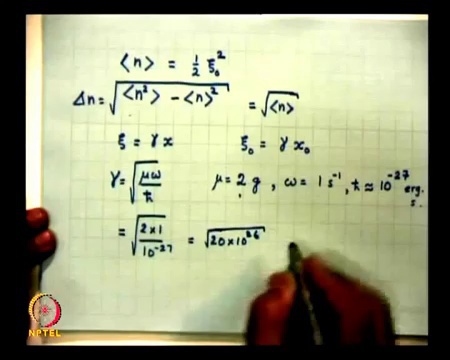 ⟨n⟩ = 1/2 ξ₀²
Δn = √(⟨n²⟩ - ⟨n⟩²) = √⟨n⟩
ξ = γ x    ξ₀ = γ x₀
γ = √(μω/ħ)    μ = 2 g , ω = 1 s⁻¹, ħ ≈ 10⁻²⁷ erg. s.
= √(2 × 1/10⁻²⁷) = √(20 × 10²⁶)
NPTEL